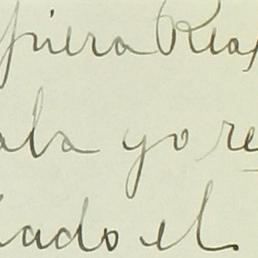 piera Rea
aba yo re
cado el